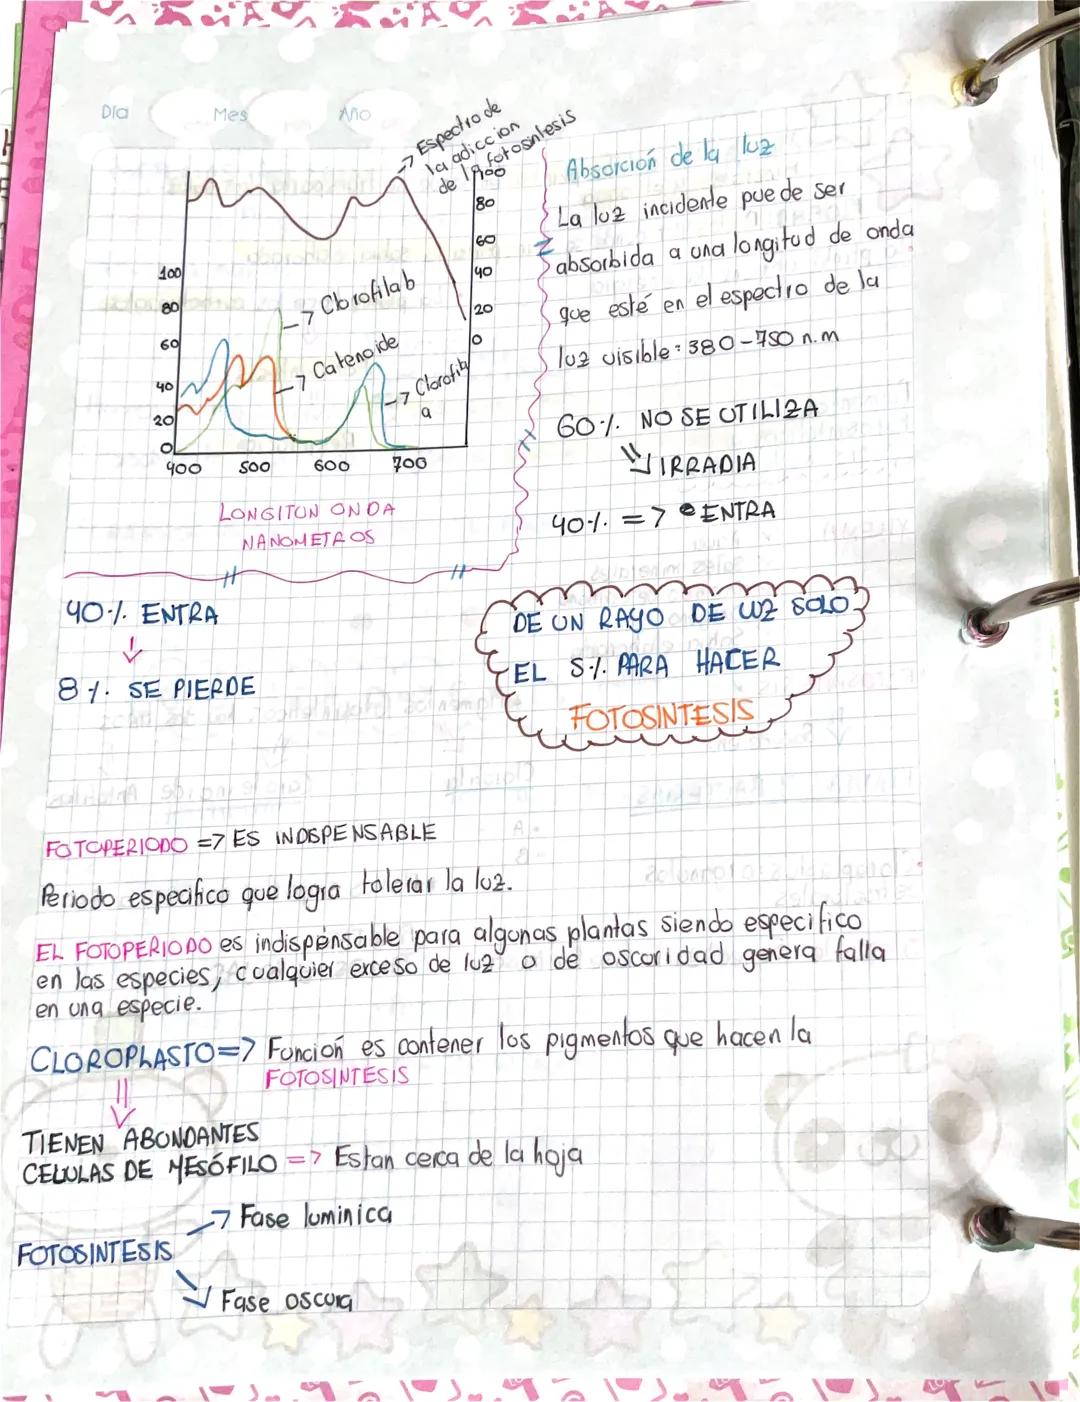 Día Mes Año
Espectro de
la adiccion
de la fotosintesis
100
80
60
40
20
0
100
80
60
40
20
0
Clorofila b
Catenoide
Clorofila
a
400 500 600 700
LONGITUN ONDA
NANOMETROS
Absorción de la luz
La luz incidente puede ser
absorbida a una longitud de onda
que esté en el espectro de la
luz visible: 380-750 n.m
60 % NO SE UTILIZA
IRRADIA
40 % => ENTRA
40 % ENTRA
8 % SE PIERDE
DE UN RAYO DE LUZ SOLO
EL 5 % PARA HACER
FOTOSINTESIS
FOTOPERIODO => ES INDISPENSABLE
Periodo especifico que logra tolerar la luz.
EL FOTOPERIODO es indispensable para algunas plantas siendo especifico
en las especies, cualquier exceso de luz o de oscuridad genera falla
en una especie.
CLOROPLASTO => Función es contener los pigmentos que hacen la
FOTOSINTESIS
TIENEN ABUNDANTES
CELULAS DE MESÓFILO => Estan cerca de la hoja
Fase luminica
FOTOSINTESIS
Fase oscura